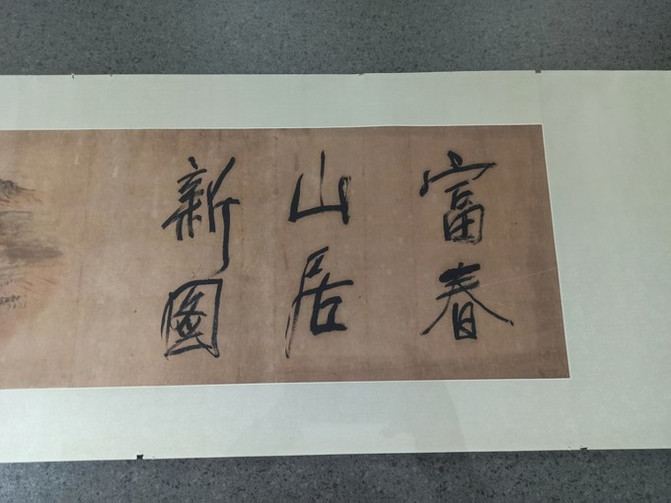 富春
山居
新图